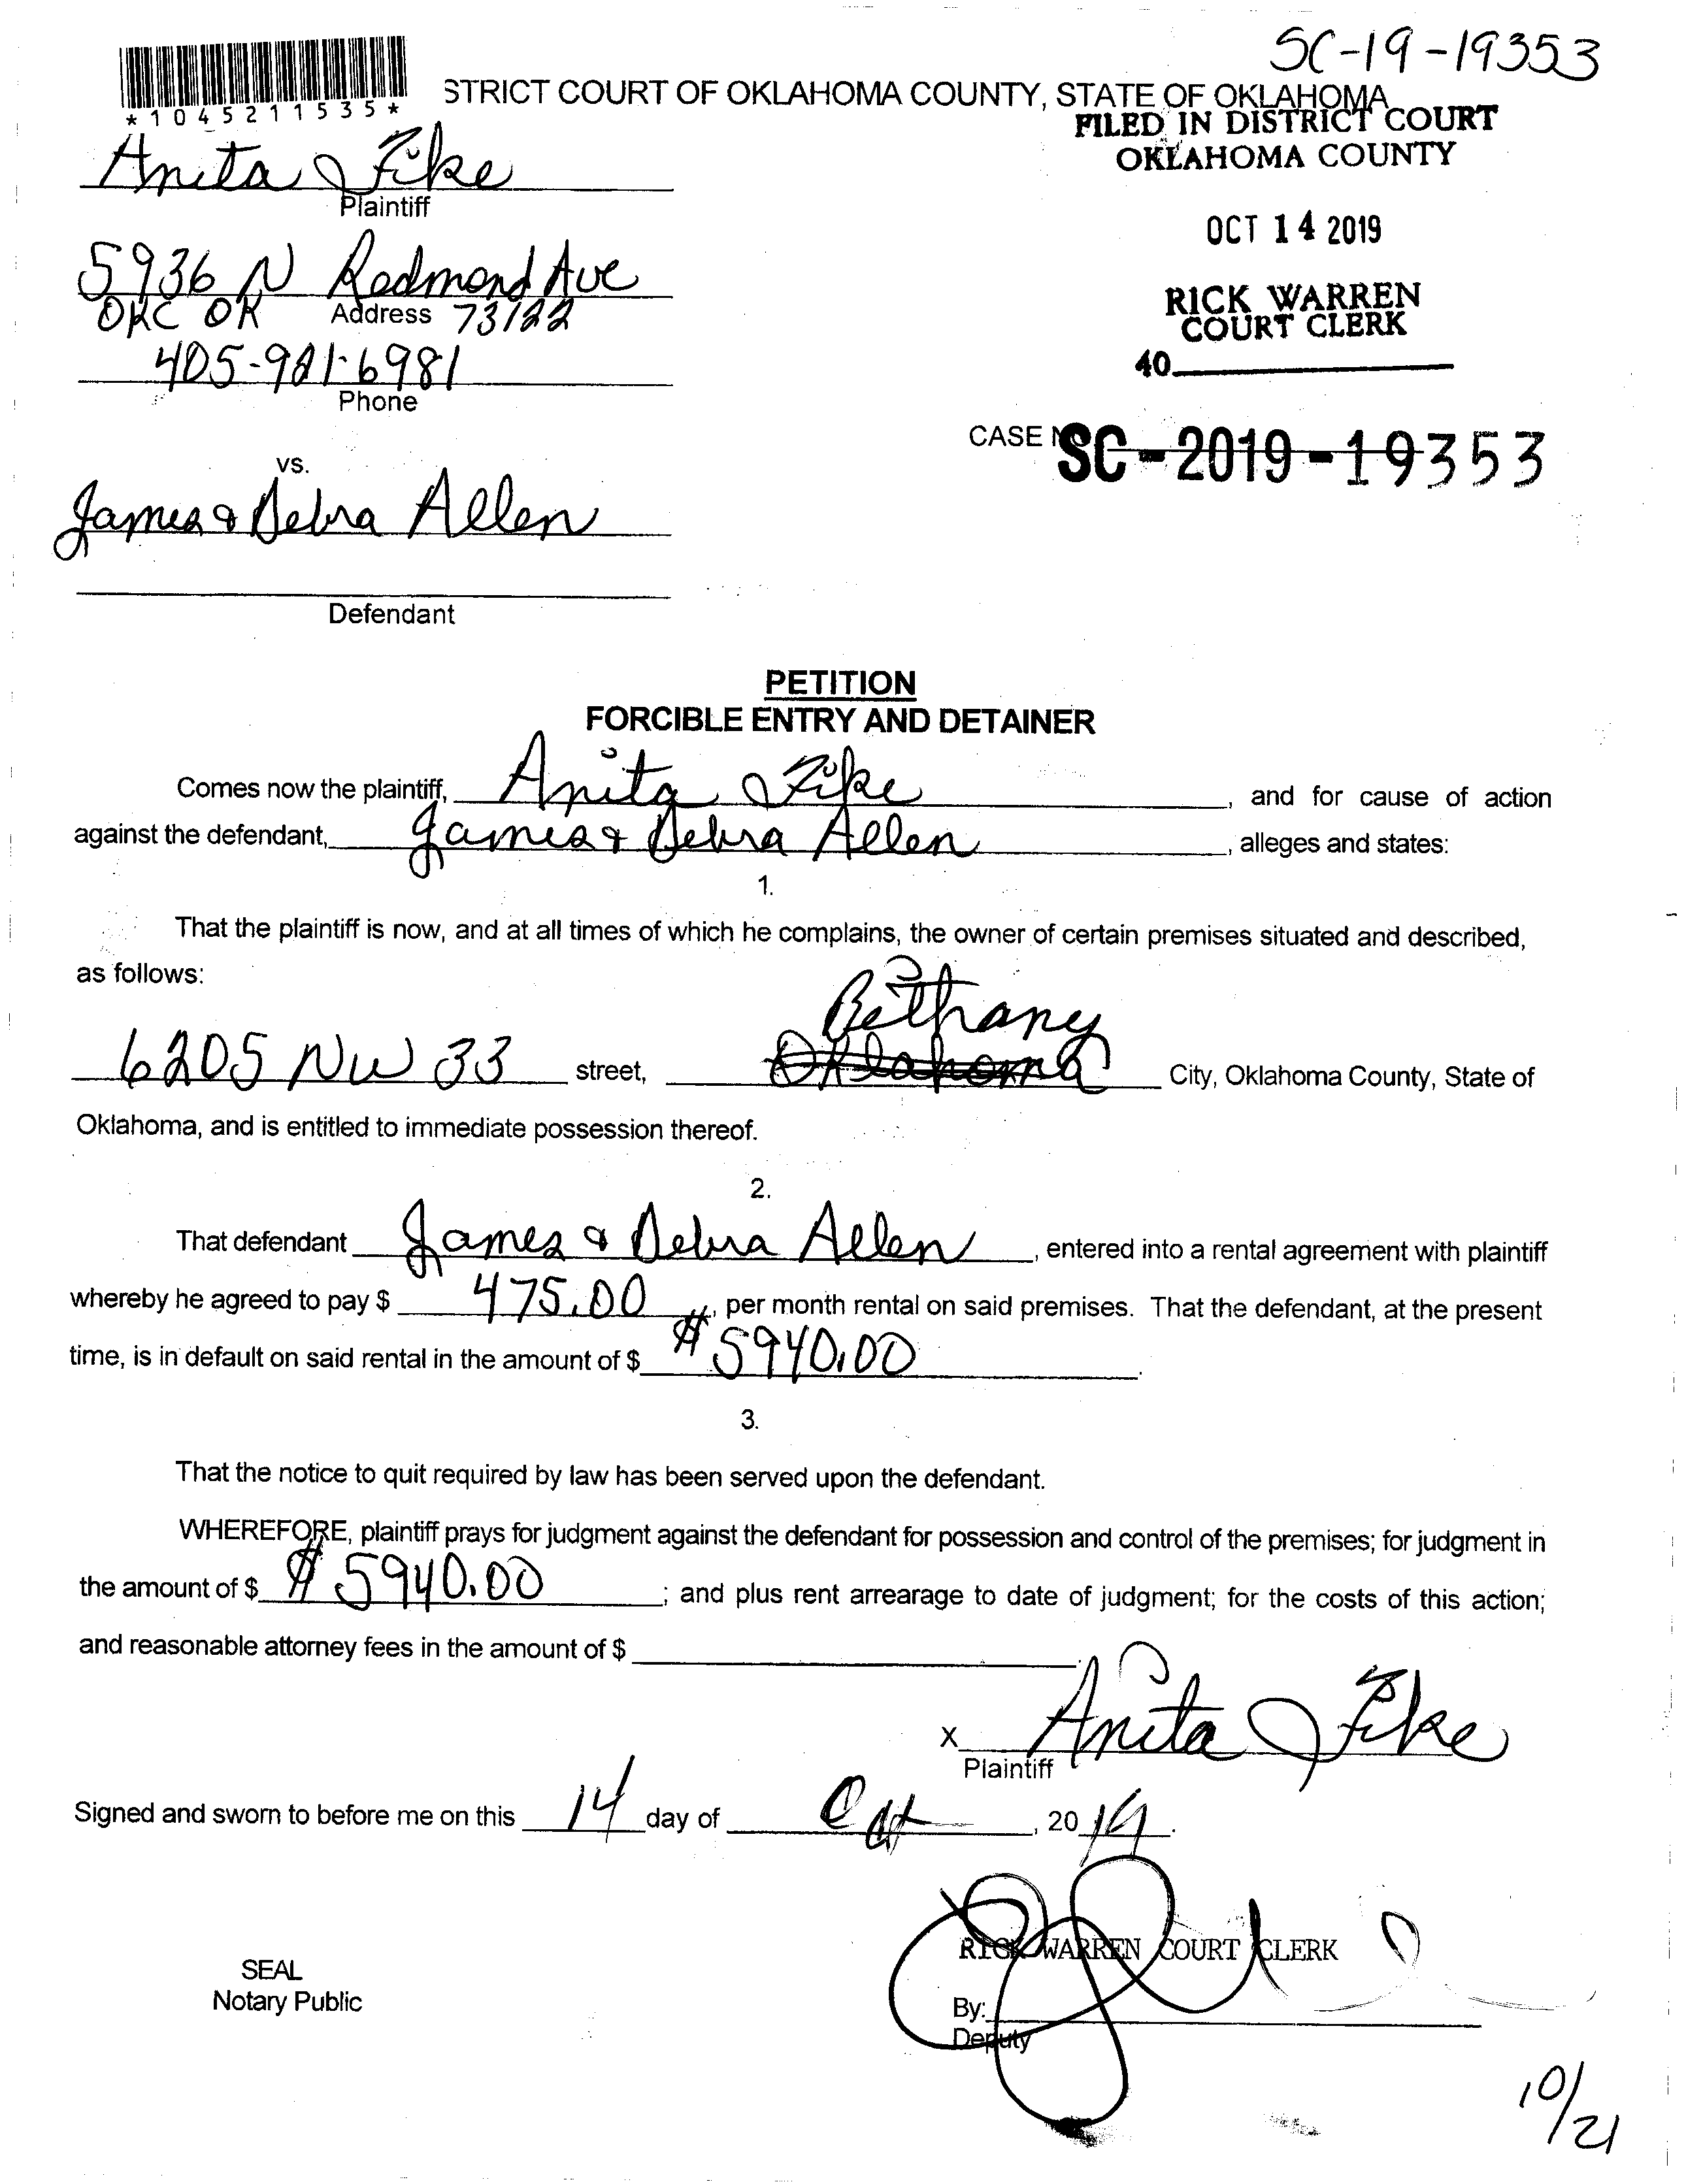 SC-19-19353
*1045211535*
STRICT COURT OF OKLAHOMA COUNTY, STATE OF OKLAHOMA
FILED IN DISTRICT COURT
OKLAHOMA COUNTY
OCT 14 2019
RICK WARREN
COURT CLERK
40
Anita Fike
Plaintiff
5936 N Redmond Ave
OKC OK Address 73122
405-921-6981
Phone
CASE N SC-2019-19353
vs.
James & Debra Allen
Defendant
PETITION
FORCIBLE ENTRY AND DETAINER
Comes now the plaintiff, Anita Fike, and for cause of action
against the defendant, James & Debra Allen, alleges and states:
1.
That the plaintiff is now, and at all times of which he complains, the owner of certain premises situated and described,
as follows:
Bethany
6205 NW 33 street, Oklahoma City, Oklahoma County, State of
Oklahoma, and is entitled to immediate possession thereof.
2.
That defendant James & Debra Allen, entered into a rental agreement with plaintiff
whereby he agreed to pay $ 475.00, per month rental on said premises. That the defendant, at the present
time, is in default on said rental in the amount of $ $5940.00.
3.
That the notice to quit required by law has been served upon the defendant.
WHEREFORE, plaintiff prays for judgment against the defendant for possession and control of the premises; for judgment in
the amount of $ $5940.00; and plus rent arrearage to date of judgment; for the costs of this action;
and reasonable attorney fees in the amount of $
X Anita Fike
Plaintiff
Signed and sworn to before me on this 14 day of Oct, 2019.
RICK WARREN COURT CLERK
SEAL
Notary Public
By:
Deputy
10/21